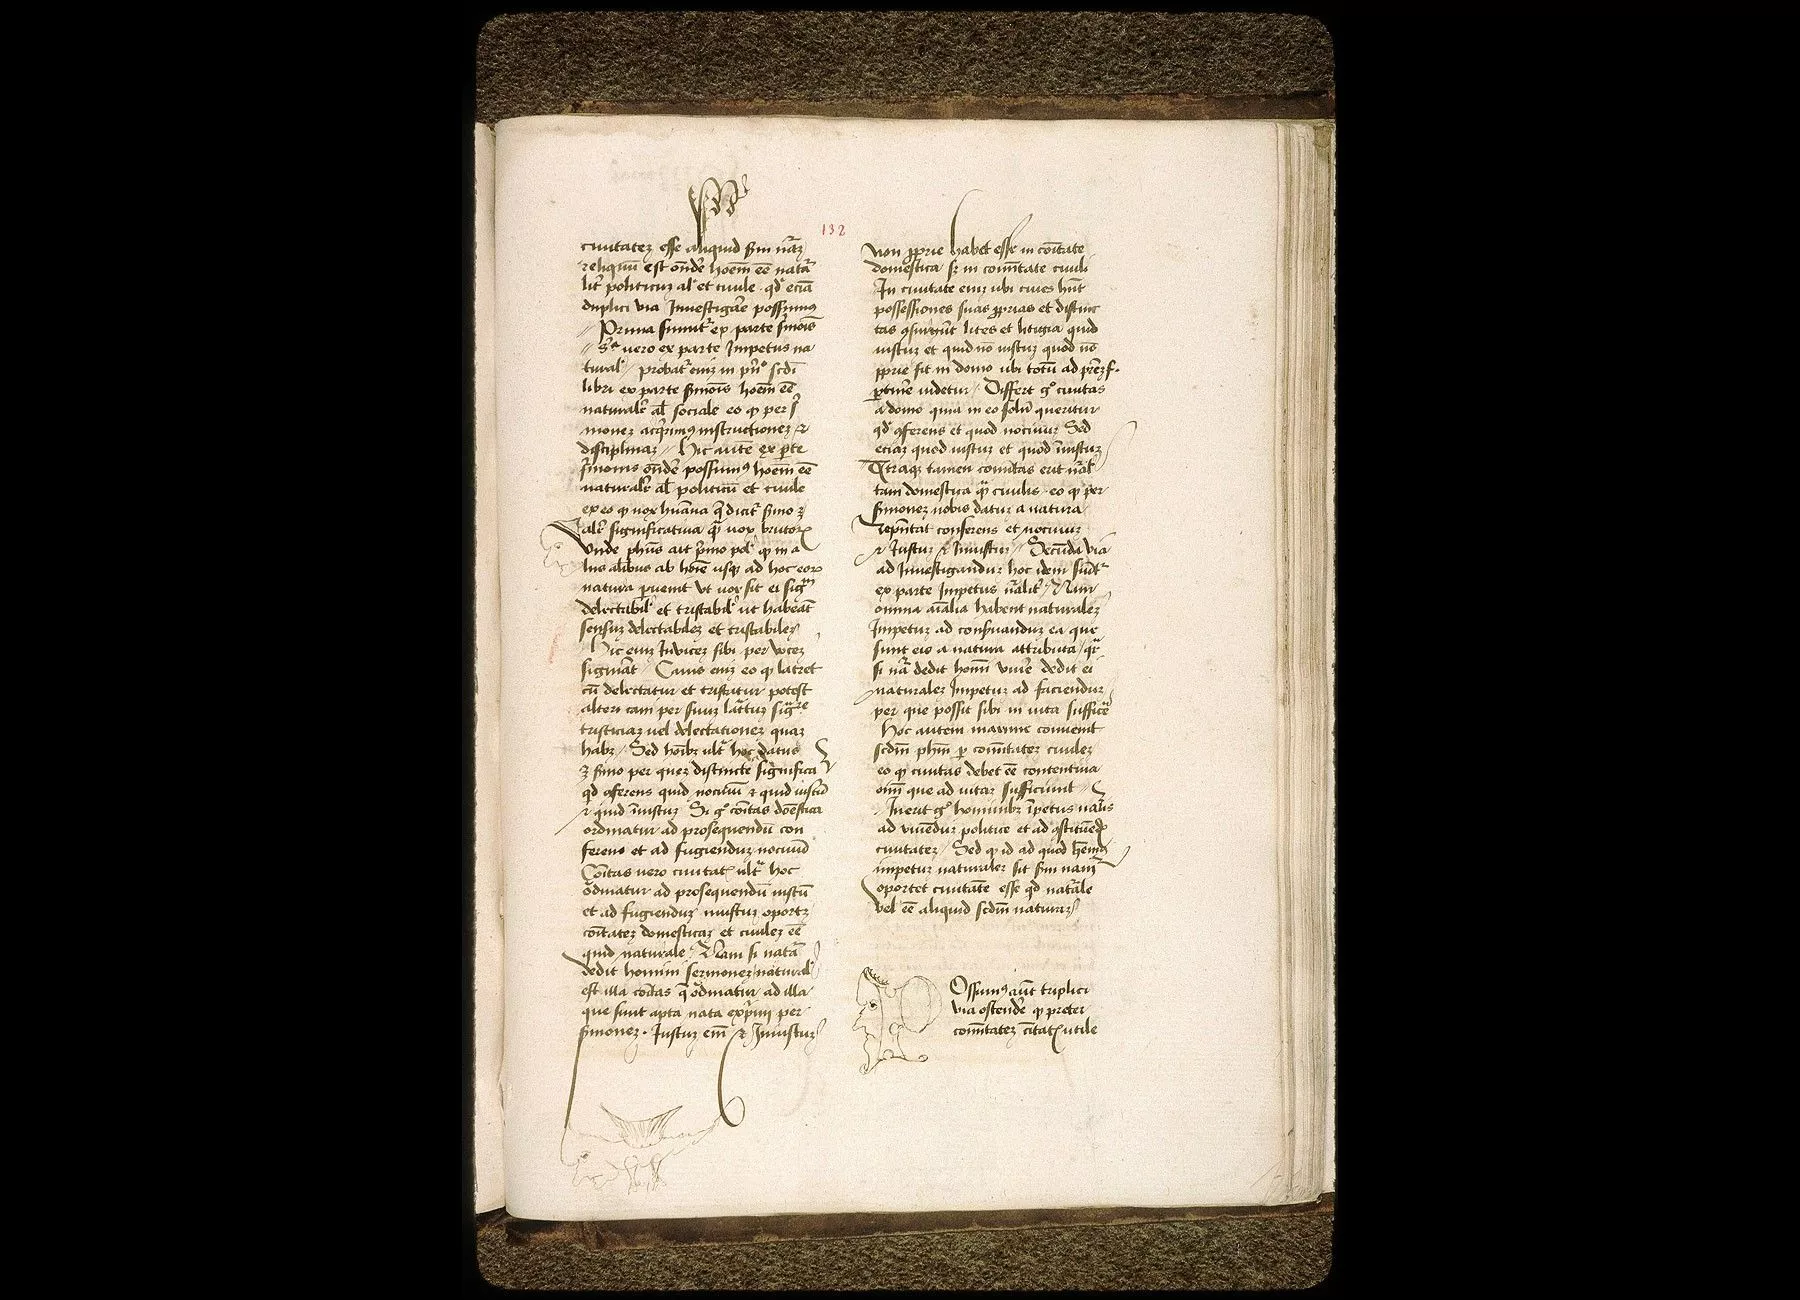 132
ciuitatez esse aliquid scdm nāz
reliquū est ondr̄e hoēm eē natā
lit̄ politicuz al' et ciuile qd' eciā
duplici via Inuestigar̄e possumus
Prima sumit' ex parte sermōis
S'a uero ex parte Impetus na
tural' / probat' eniz in pri° scdi
libri ex parte sermōis hoēm eē
naturale al' sociale eo qp per s'
monez acqrimus instructionez et
disciplinaz / Hic autē ex pte
sermonis ondr̄e possumus hoēm eē
naturale al' politicū et ciuile
ex eo qp uox huāna q̄ dicit' sermo ē
alit' significatiua q̄ uox brutorum
Vnde phūs ait primo pol' qp in a
liis alibus ab hoīe usqz ad hoc eorum
natura peruenit vt uox sit ei sigm
delectabil' et tristabil' ut habeāt
sensuz delectabilez et tristabilez
Hic eniz Inuicez sibi per vocez
signiāt / Canis eniz eo qp latret
cū delectatur et tristatur potest
alteri cani per suuz lātuz sigre
tristiciaz uel delectationez quaz
habz / Sed hoībz ult' hoc datus
ē sermo per quez distincte significa
qd conferens quid nociuū et quid iustū
et quid iniustuz Si g° coītas doēstica
ordinatur ad prosequendū con
ferens et ad fugienduz nociuū
Coītas uero ciuitat' ult' hoc
ordinatur ad prosequendū iustū
et ad fugienduz iniustuz oportz
coītatez domesticaz et ciuilez eē
quid naturale / Nam si natā
dedit homini sermonez natural'
est illa coītas q̄ ordinatur ad illa
que sunt apta nata exprimi per
sermonez . Iustuz em̄ et Iniustuz
non proprie habet esse in coītate
domestica sz in coītate ciuili
In ciuitate eniz ubi ciues hn̄t
possessiones suas proprias et distinc
tas consurgūt lites et litigia quid
iustuz et quid nō iustuz quod nō
proprie fit in domo ubi totū ad prēz f.
ptinēre uidetur / Differt g° ciuitas
a domo quia in eo solū queritur
qd' conferens et quod nociuuz Sed
eciaz quod iustuz et quod iniustuz
Vtraqz tamen coītas erit nāl'
tam domestica q̄ ciuilis eo qp per
sermonez nobis datuz a natura
repn̄tat conferens et nociuuz
et Iustuz et Iniustuz / Secunda via
ad Inuestiganduz hoc idem sumit'
ex parte Impetus nālit' / Nam
omnia aīalia habent naturalez
Impetuz ad conseruanduz ea que
sunt eis a natura attributa / qr
si nā dedit homī viuēre dedit ei
naturalez Impetuz ad faciendum
per que possit sibi in uita sufficē
Hoc autem maxime conuenit
scdm phm̄ p coītatez ciuilez
eo qp ciuitas debet eē contentiua
oīm que ad uitaz sufficiunt
Inerit g° hominibz īpetus nālis
ad viuenduz politice et ad constituēdam
ciuitatez / Sed qp id ad quod hēmus
impetuz naturalez sit scdm nām
oportet ciuitatē esse qd natāle
vel eē aliquid scdm naturaz
Ossumus aūt triplici
via ostendēre qp preter
coītatez
utile